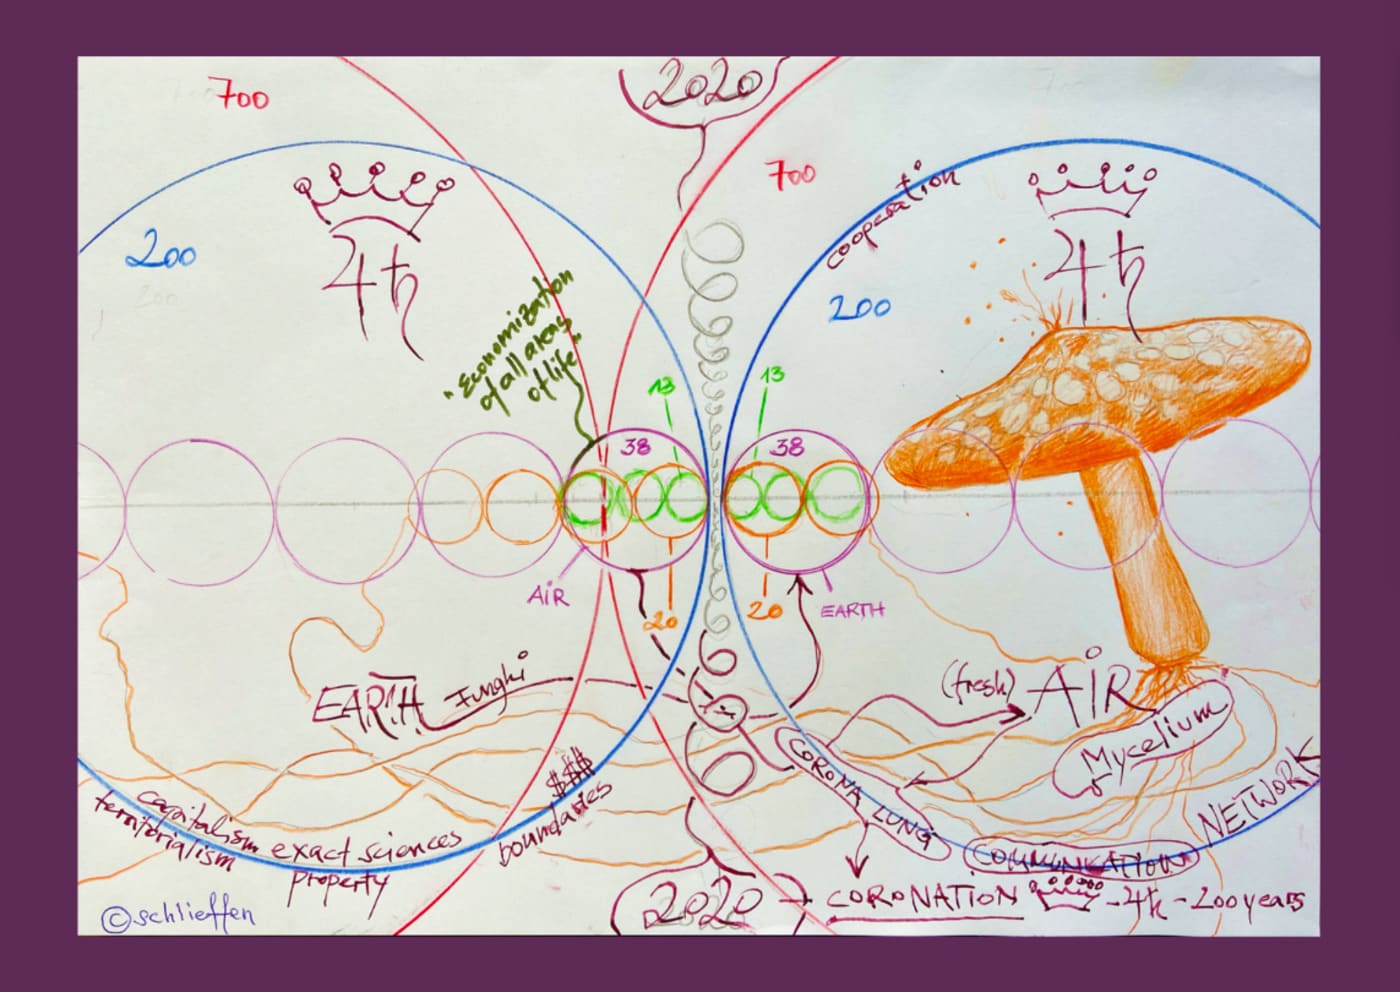 2020
700
700
cooperation
200
200
♃♄
♃♄
"Economization
of all areas
of life"
13
13
38
38
AiR
20
20
EARTH
EARTH Funghi
(fresh) AiR
Mycelium
CORONA LUNG
NETWORK
$$$
boundaries
capitalism
territorialism
exact sciences
property
COMMUNICATION
2020 → CORONATION - ♃♄ - 200 years
©schlieffen